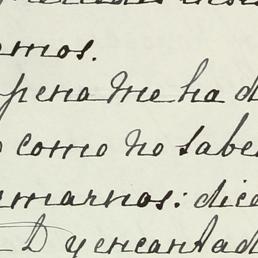 amos.
pena me ha d
como no sabe
marnos: dice
D y encantad